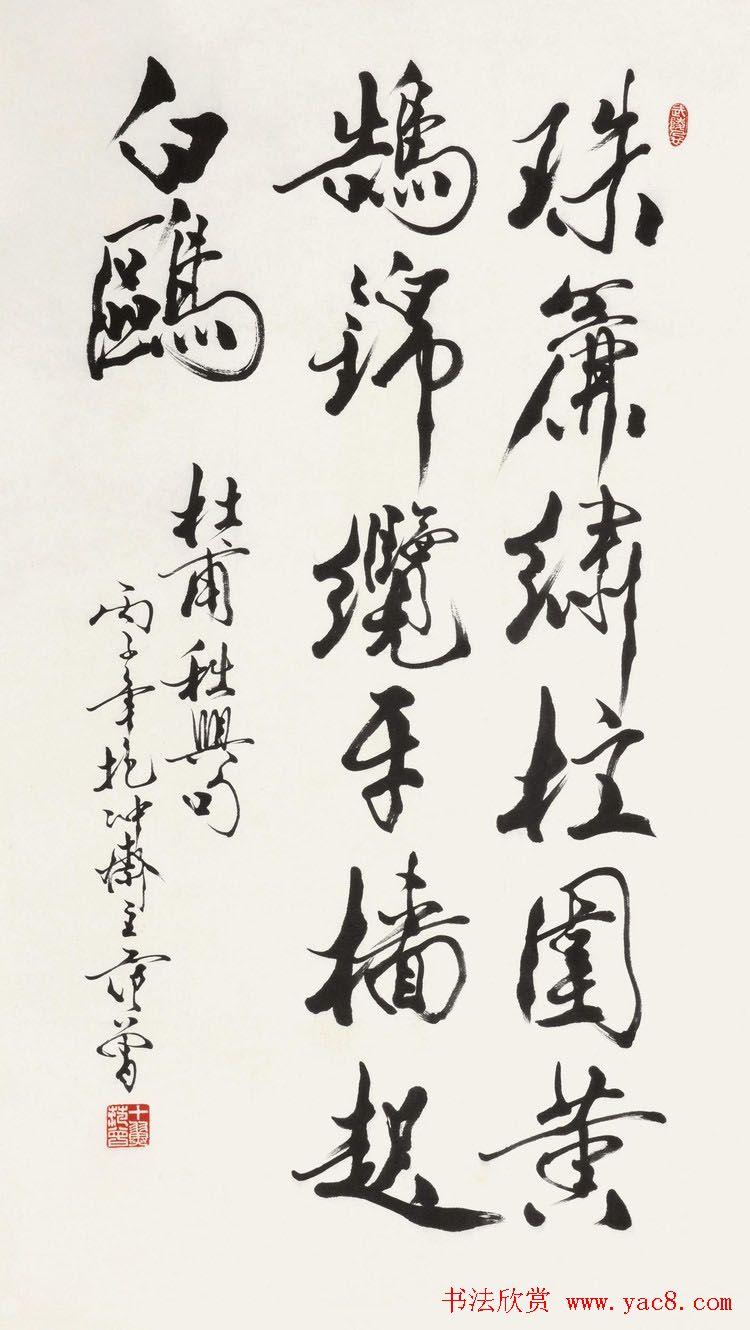 珠簾繡柱圍黄
鵠錦纜牙檣起
白鷗
杜甫秋興句
丙子年抱冲齋主范曾
十翼范曾
书法欣赏 www.yac8.com